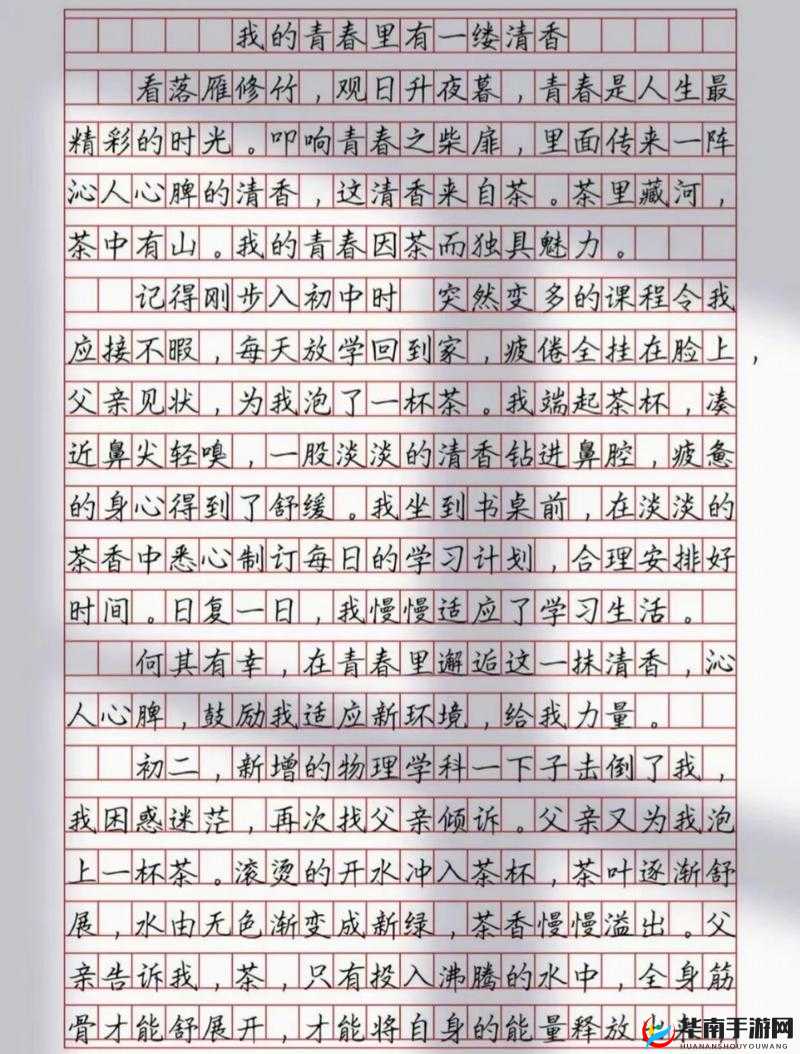 我的青春里有一缕清香
看落雁修竹，观日升夜暮，青春是人生最
精彩的时光。叩响青春之柴扉，里面传来一阵
沁人心脾的清香，这清香来自茶。茶里藏河，
茶中有山。我的青春因茶而独具魅力。
记得刚步入初中时 突然变多的课程令我
应接不暇，每天放学回到家，疲倦全挂在脸上，
父亲见状，为我泡了一杯茶。我端起茶杯，凑
近鼻尖轻嗅，一股淡淡的清香钻进鼻腔，疲惫
的身心得到了舒缓。我坐到书桌前，在淡淡的
茶香中悉心制订每日的学习计划，合理安排好
时间。日复一日，我慢慢适应了学习生活。
何其有幸，在青春里邂逅这一抹清香，沁
人心脾，鼓励我适应新环境，给我力量。
初二，新增的物理学科一下子击倒了我，
我困惑迷茫，再次找父亲倾诉。父亲又为我泡
上一杯茶。滚烫的开水冲入茶杯，茶叶逐渐舒
展，水由无色渐变成新绿，茶香慢慢溢出。父
亲告诉我，茶，只有投入沸腾的水中，全身筋
骨才能舒展开，才能将自身的能量释放出来，
华南手游网
HUANANSHOUYOUWANG